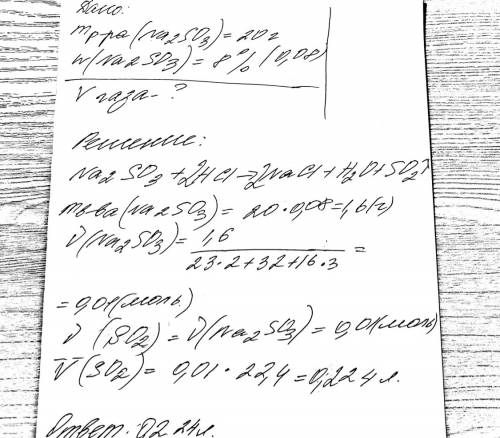 Дано:
m р-ра (Na2SO3) = 20 г
w (Na2SO3) = 8% (0,08)
V газа - ?
Решение:
Na2SO3 + 2HCl → 2NaCl + H2O + SO2↑
m в-ва (Na2SO3) = 20 · 0,08 = 1,6 (г)
ν (Na2SO3) = 1,6 / 23·2+32+16·3 =
= 0,01 (моль)
ν (SO2) = ν (Na2SO3) = 0,01 (моль)
V (SO2) = 0,01 · 22,4 = 0,224 л.
Ответ: 0,224 л.